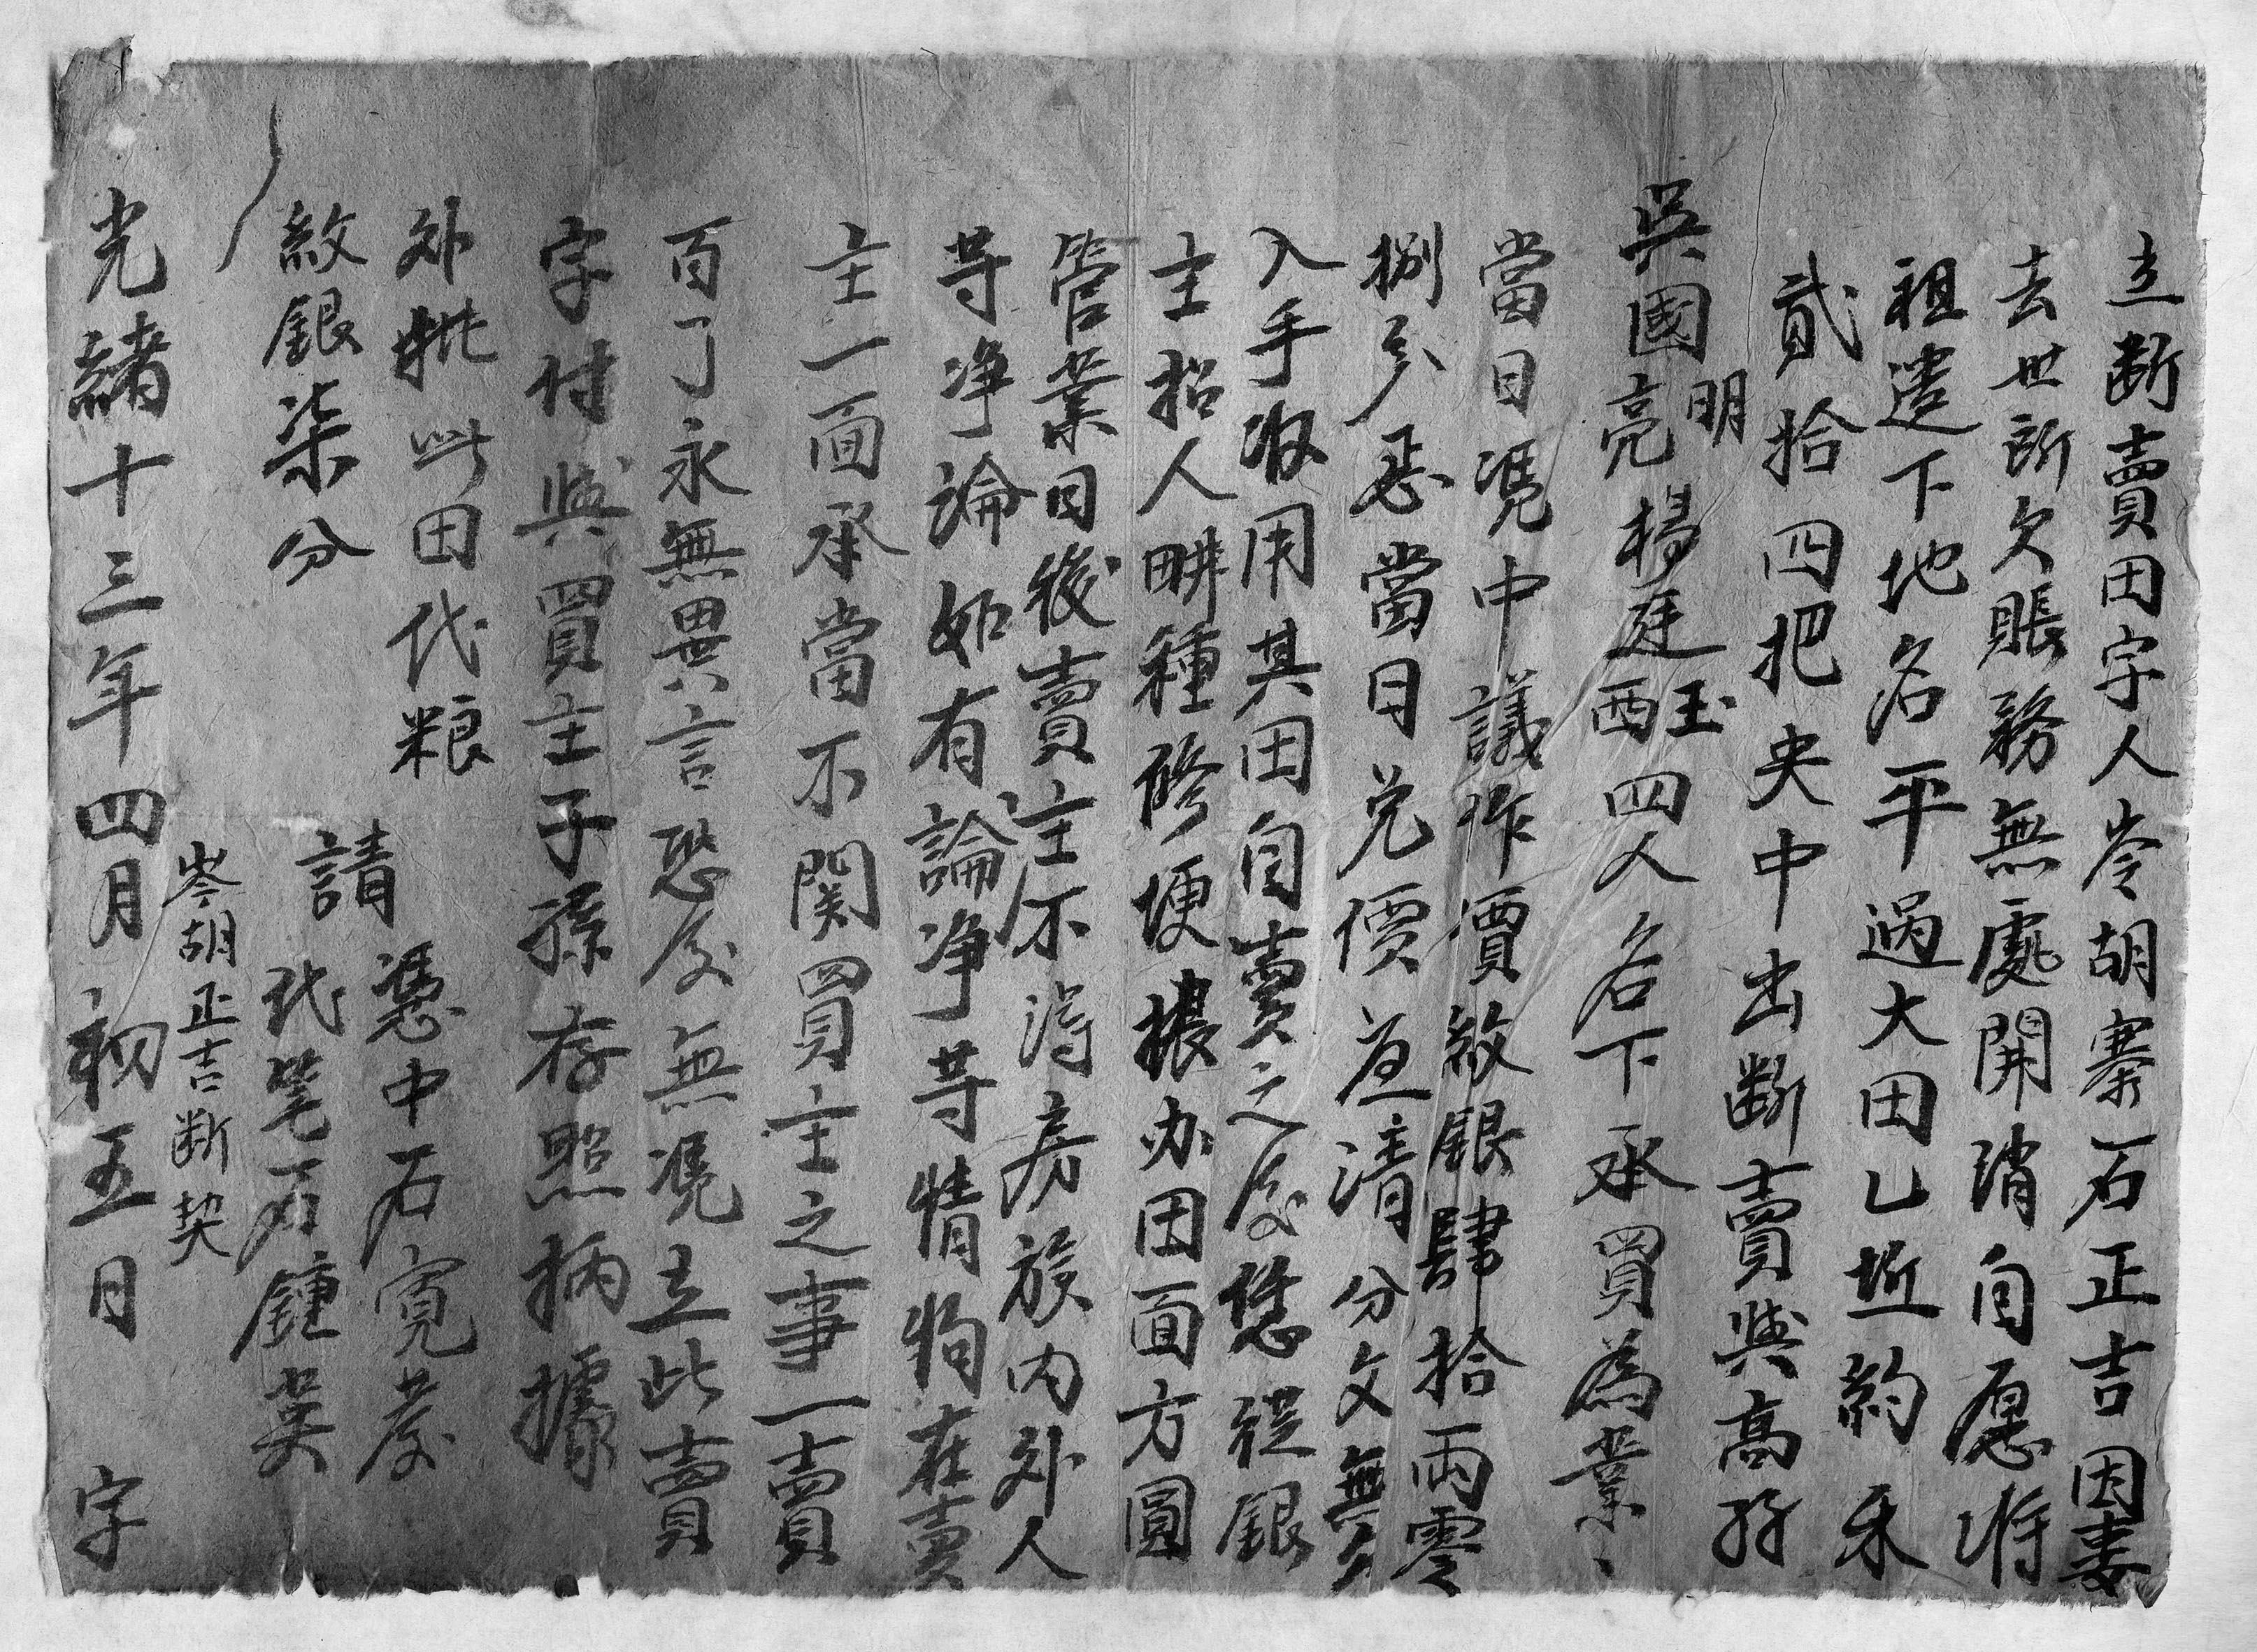 立断賣田字人岑胡寨石正吉因妻
去世所欠賬務無處開消自愿将
祖遺下地名平過大田乚坵約禾
貳拾四把央中出断賣與高孖
吳國亮明楊廷西玉四人名下承買為業
當日憑中議作價紋銀肆拾兩零
捌分 當日兑價并清分文無
入手收用其田自賣之後恁從銀
主招人畊種修埂 办田面方圓
管業日後賣主不得房族内外人
等净論如有論净等情 在賣
主一面承當不関買主之事一賣
百了永無異言恐後無憑立此賣
字付與買主子孫存照柄據
外批此田代粮
紋銀柒分
請憑中石寬發
代笔石鍾英
岑胡正吉断契
光緒十三年四月初五日 字